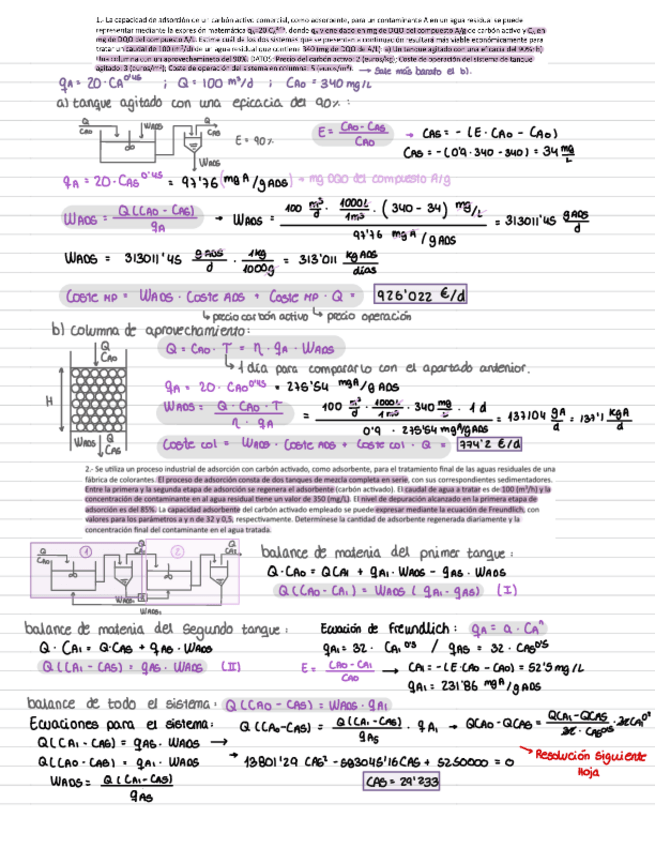 1.- La capacidad de adsorción de un carbón activo comercial, como adsorbente, para un contaminante A en un agua residual se puede
representar mediante la expresión matemática qA=20·CA^0,45, donde qA viene dado en mg de DQO del compuesto A/g de carbón activo y CA en
mg de DQO del compuesto A/L. Estime cuál de los dos sistemas que se presentan a continuación resultará más viable económicamente para
tratar un caudal de 100 m³/d de un agua residual que contiene 340 (mg de DQO de A/L): a) Un tanque agitado con una eficacia del 90%; b)
Una columna con un aprovechamiento del 90%. DATOS: Precio del carbón activo: 2 (euros/kg); Coste de operación del sistema de tanque
agitado: 3 (euros/m³); Coste de operación del sistema en columna: 5 (euros/m³). → Sale más barato el b).
qA = 20·CA^0'45 ; Q = 100 m³/d ; CAO = 340 mg/L
a) tanque agitado con una eficacia del 90% :
Q CAO WADS Q CAS WADS
E = 90%
E = (CAO - CAS) / CAO → CAS = - (E·CAO - CAO)
CAS = -(0'9·340 - 340) = 34 mg/L
qA = 20·CAS^0'45 = 97'76 (mg A/g ADS) → mg DQO del compuesto A/g
WADS = Q(CAO - CAS) / qA → WADS = 100 m³/d · 1000L/1m³ · (340 - 34) mg/L / 97'76 mg A/g ADS = 313011'45 g ADS/d
WADS = 313011'45 g ADS/d · 1kg/1000g = 313'011 kg ADS/días
Coste MP = WADS · Coste ADS + Coste MP · Q = 926'022 €/d
↳ precio carbón activo ↳ precio operación
b) columna de aprovechamiento:
Q CAO
Q = CAO · T = η · qA · WADS
↳ 1 día para compararlo con el apartado anterior.
qA = 20·CAO^0'45 = 275'54 mg A/g ADS
H
WADS = Q·CAO·T / η·qA = 100 m³/d · 1000L/1m³ · 340 mg/L · 1d / 0'9 · 275'54 mg A/g ADS = 137104 g A/d = 137'1 kg A/d
WADS Q CAS
Coste col = WADS · Coste ADS + Coste col · Q = 774'2 €/d
2.- Se utiliza un proceso industrial de adsorción con carbón activado, como adsorbente, para el tratamiento final de las aguas residuales de una
fábrica de colorantes. El proceso de adsorción consta de dos tanques de mezcla completa en serie, con sus correspondientes sedimentadores.
Entre la primera y la segunda etapa de adsorción se regenera el adsorbente (carbón activado). El caudal de agua a tratar es de 100 (m³/h) y la
concentración de contaminante en al agua residual tiene un valor de 350 (mg/L). El nivel de depuración alcanzado en la primera etapa de
adsorción es del 85%. La capacidad adsorbente del carbón activado empleado se puede expresar mediante la ecuación de Freundlich, con
valores para los parámetros a y n de 32 y 0,5, respectivamente. Determínese la cantidad de adsorbente regenerada diariamente y la
concentración final del contaminante en el agua tratada.
Q CAO ① Q CA1 ② Q CAS
WADS R
WADS
balance de materia del primer tanque :
Q·CAO = QCA1 + qA1·WADS - qAS·WADS
Q(CAO - CA1) = WADS (qA1 - qAS) (I)
balance de materia del segundo tanque :
Q·CA1 = Q·CAS + qAS·WADS
Q(CA1 - CAS) = qAS·WADS (II)
Ecuación de Freundlich : qA = a·CA^n
qA1 = 32·CA1^0'5 / qAS = 32·CAS^0'5
E = (CAO - CA1) / CAO → CA1 = -(E·CAO - CAO) = 52'5 mg/L
qA1 = 231'86 mg A/g ADS
balance de todo el sistema : Q(CAO - CAS) = WADS·qA1
Ecuaciones para el sistema:
Q(CA1 - CAS) = qAS·WADS →
Q(CAO - CAS) = qA1·WADS
WADS = Q(CA1 - CAS) / qAS
Q(CAO - CAS) = Q(CA1 - CAS) / qAS · qA1 → QCAO - QCAS = QCA1 - QCAS / 32·CAS^0'5 · 32CA1^0'5
→ 13801'29 CAS² - 593045'16 CAS + 5250000 = 0
CAS = 29'233
→ Resolución siguiente
Hoja